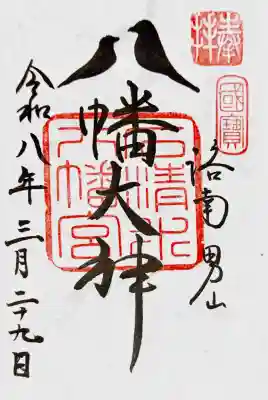 奉拝
國寳
洛南 男山
八幡大神
石清水八幡宮
令和八年 三月二十九日